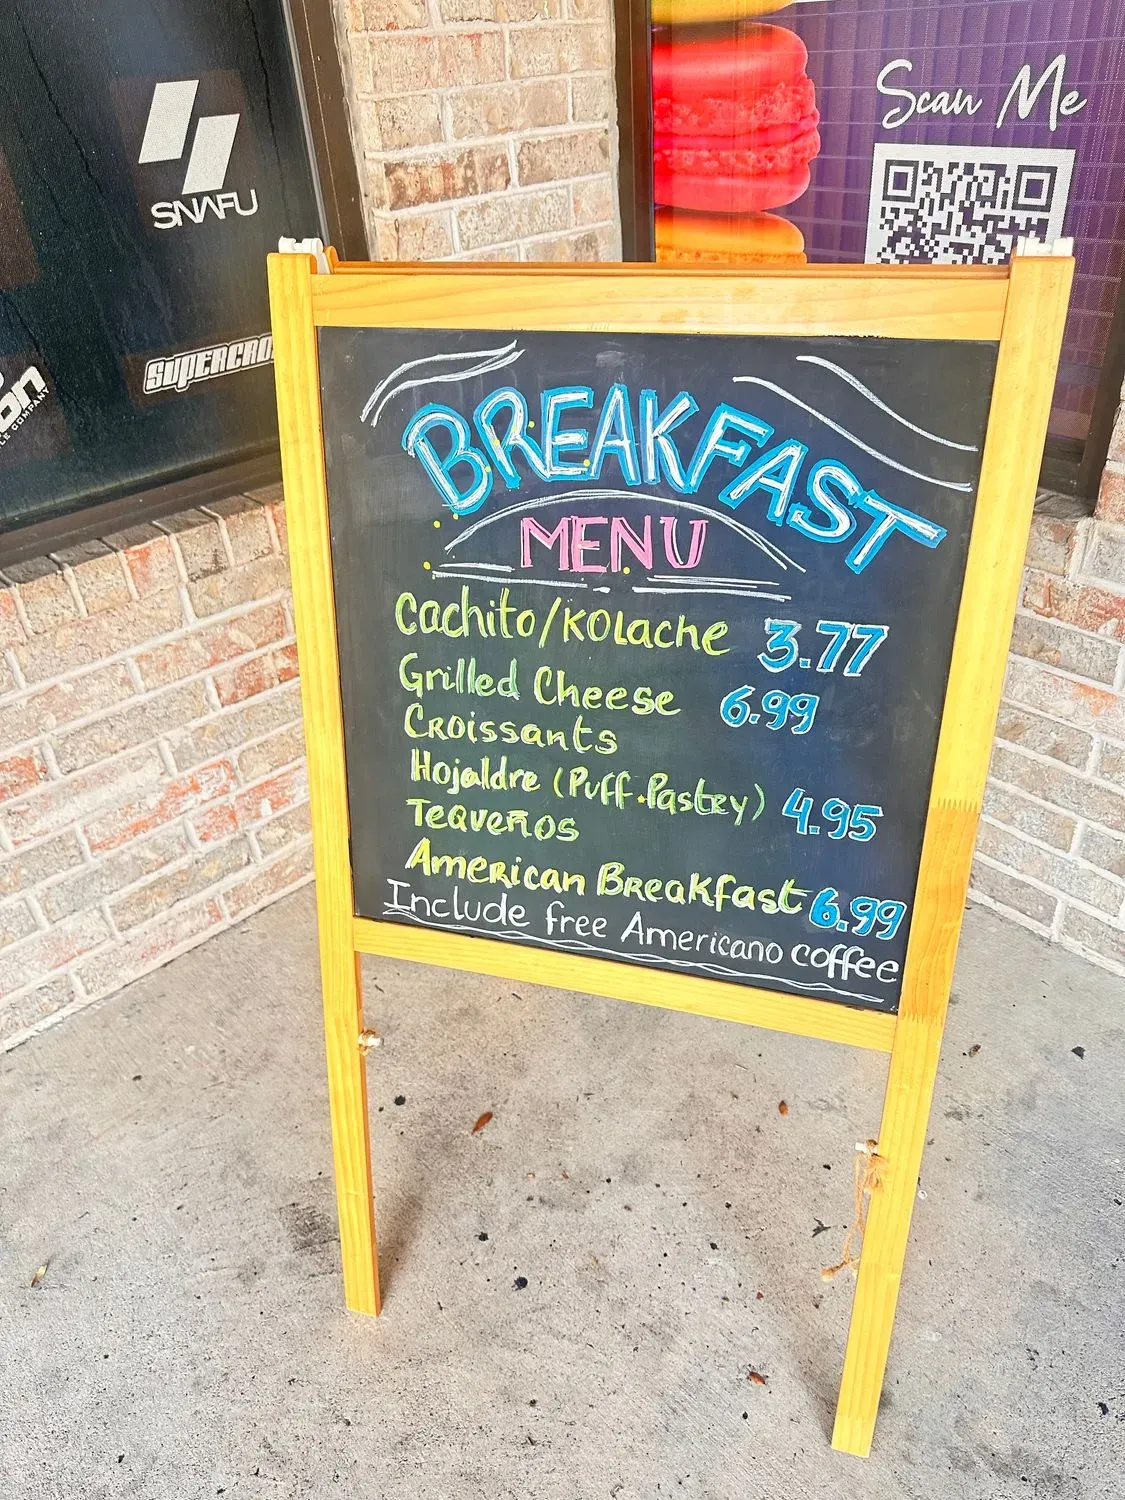 SNAFU
SUPERCRO
Scan Me
BREAKFAST
MENU
Cachito/Kolache 3.77
Grilled Cheese 6.99
Croissants
Hojaldre (Puff.Pastry) 4.95
Tequeños
American Breakfast 6.99
Include free Americano coffee